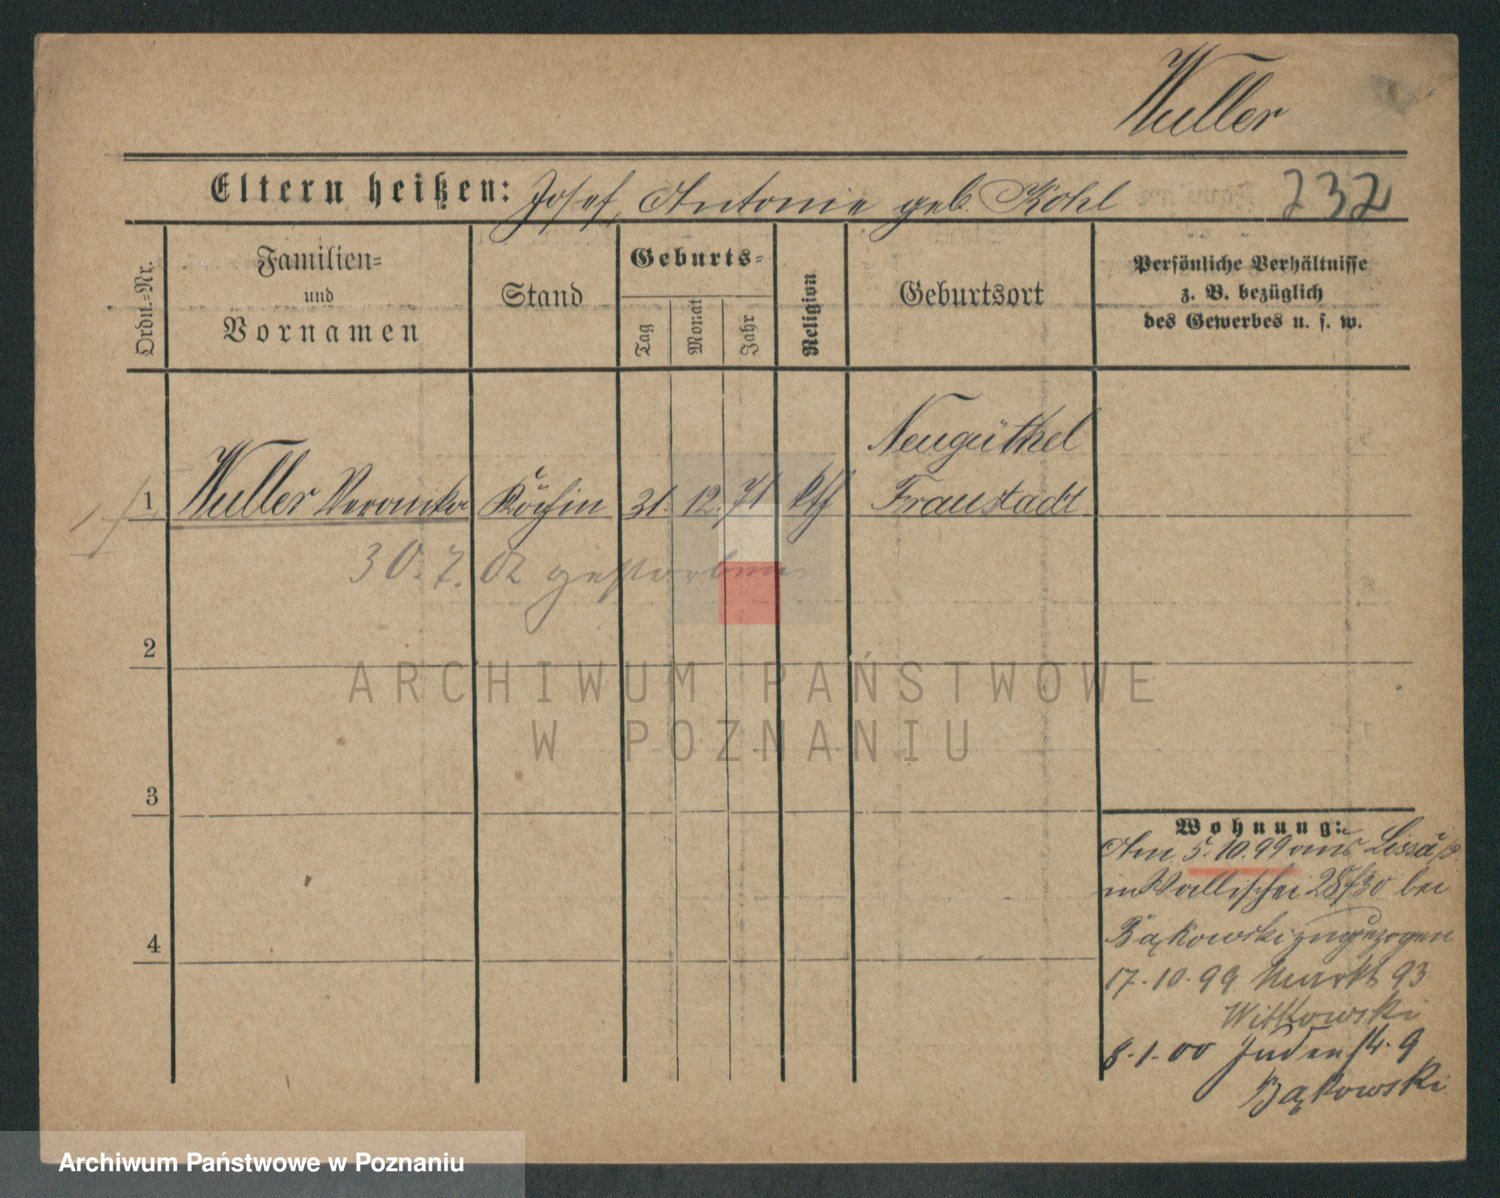 Wuller
Eltern heißen: Josef, Antonie geb. Kohl 232
Ordn.-Nr.
Familien-
und
Vornamen
Stand
Geburts-
Tag
Monat
Jahr
Religion
Geburtsort
Persönliche Verhältnisse
z. B. bezüglich
des Gewerbes u. s. w.
Neugüthel
1 Wuller Veronika Köchin 31. 12. 71 kth Fraustadt
30. 7. 02 gestorben
2
ARCHIWUM PAŃSTWOWE
W POZNANIU
3
Wohnung:
Am 5. 10. 99 aus Lissa
in Wallischei 28/30 bei
Bąkowski zugezogen
4
17. 10. 99 Markt 93
Witkowski
8. 1. 00 Judenstr. 9
Bąkowski
Archiwum Państwowe w Poznaniu